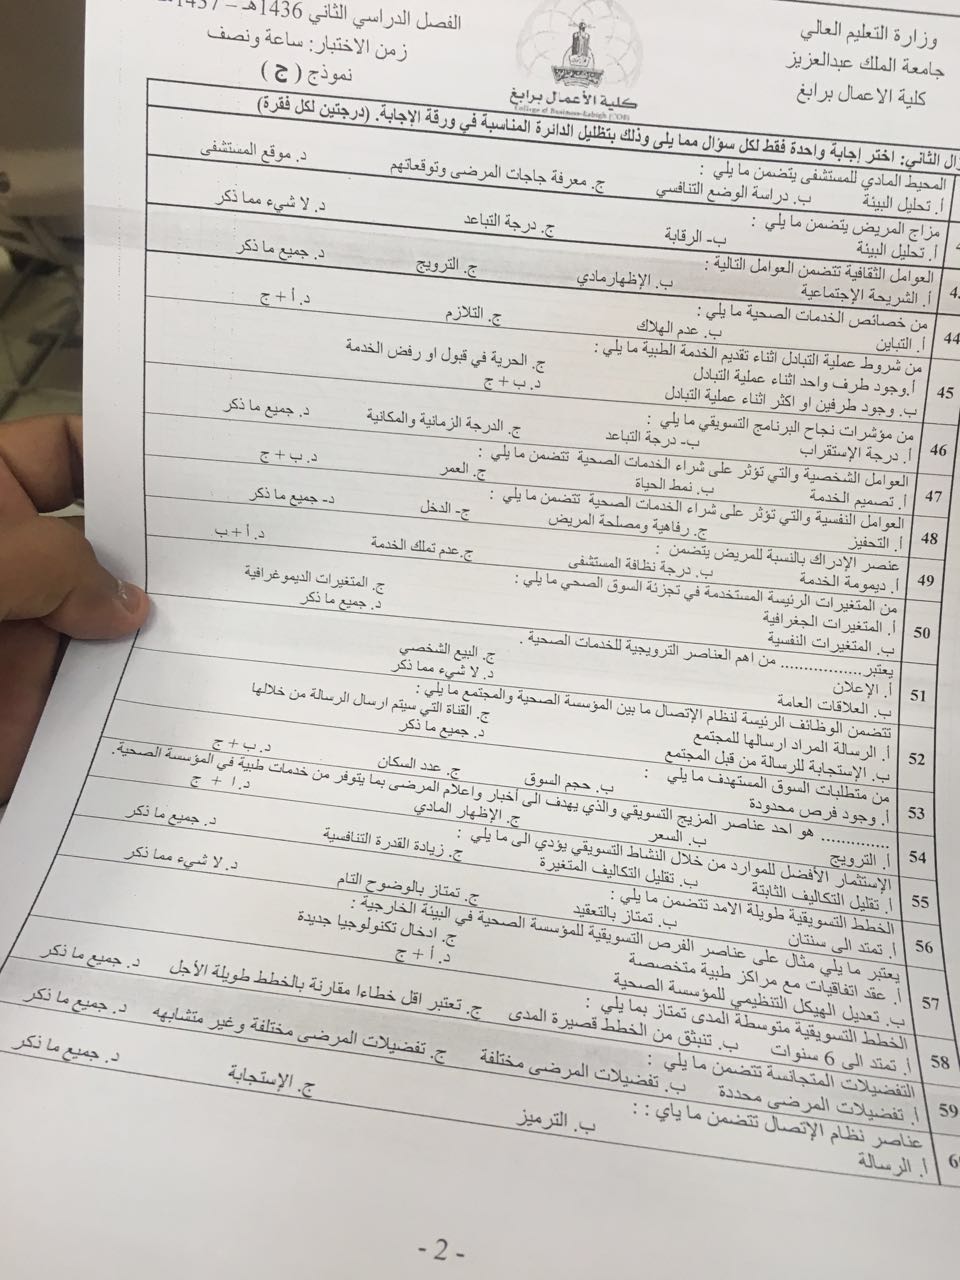 وزارة التعليم العالي
جامعة الملك عبدالعزيز
كلية الاعمال برابغ
كلية الأعمال برابغ
College of Business-Rabigh (COB)
الفصل الدراسي الثاني 1436هـ – 1437هـ
زمن الاختبار: ساعة ونصف
نموذج ( ج )
الثاني: اختر إجابة واحدة فقط لكل سؤال مما يلي وذلك بتظليل الدائرة المناسبة في ورقة الإجابة. (درجتين لكل فقرة)
المحيط المادي للمستشفى يتضمن ما يلي :
أ. تحليل البيئة ب. دراسة الوضع التنافسي ج. معرفة حاجات المرضى وتوقعاتهم د. موقع المستشفى
مزاج المريض يتضمن ما يلي :
أ. تحليل البيئة ب- الرقابة ج. درجة التباعد د. لا شيء مما ذكر
العوامل الثقافية تتضمن العوامل التالية :
أ. الشريحة الإجتماعية ب. الإظهارمادي ج. الترويج د. جميع ما ذكر
44 من خصائص الخدمات الصحية ما يلي :
أ. التباين ب. عدم الهلاك ج. التلازم د. أ + ج
45 من شروط عملية التبادل اثناء تقديم الخدمة الطبية ما يلي :
أ.وجود طرف واحد اثناء عملية التبادل ج. الحرية في قبول او رفض الخدمة
ب. وجود طرفين او اكثر اثناء عملية التبادل د. ب + ج
46 من مؤشرات نجاح البرنامج التسويقي ما يلي :
أ. درجة الإستقراب ب- درجة التباعد ج. الدرجة الزمانية والمكانية د. جميع ما ذكر
47 العوامل الشخصية والتي تؤثر على شراء الخدمات الصحية تتضمن ما يلي :
أ. تصميم الخدمة ب. نمط الحياة ج. العمر د. ب + ج
48 العوامل النفسية والتي تؤثر على شراء الخدمات الصحية تتضمن ما يلي :
أ. التحفيز ج. رفاهية ومصلحة المريض ج- الدخل د- جميع ما ذكر
49 عنصر الإدراك بالنسبة للمريض يتضمن :
أ. ديمومة الخدمة ب. درجة نظافة المستشفى ج.عدم تملك الخدمة د. أ + ب
50 من المتغيرات الرئيسة المستخدمة في تجزئة السوق الصحي ما يلي :
أ. المتغيرات الجغرافية ج. المتغيرات الديموغرافية
ب. المتغيرات النفسية د. جميع ما ذكر
51 يعتبر............... من اهم العناصر الترويجية للخدمات الصحية .
أ. الإعلان ج. البيع الشخصي
ب. العلاقات العامة د. لا شيء مما ذكر
52 تتضمن الوظائف الرئيسة لنظام الإتصال ما بين المؤسسة الصحية والمجتمع ما يلي :
أ. الرسالة المراد ارسالها للمجتمع ج. القناة التي سيتم ارسال الرسالة من خلالها
ب. الإستجابة للرسالة من قبل المجتمع د. جميع ما ذكر
53 من متطلبات السوق المستهدف ما يلي :
أ. وجود فرص محدودة ب. حجم السوق ج. عدد السكان د. ب + ج
54 ............... هو احد عناصر المزيج التسويقي والذي يهدف الى أخبار واعلام المرضى بما يتوفر من خدمات طبية في المؤسسة الصحية.
أ. الترويج ب. السعر ج. الإظهار المادي د. ا + ج
55 الإستثمار الأفضل للموارد من خلال النشاط التسويقي يؤدي الى ما يلي :
أ. تقليل التكاليف الثابتة ب. تقليل التكاليف المتغيرة ج. زيادة القدرة التنافسية د. جميع ما ذكر
56 الخطط التسويقية طويلة الامد تتضمن ما يلي :
أ. تمتد الى سنتان ب. تمتاز بالتعقيد ج. تمتاز بالوضوح التام د. لا شيء مما ذكر
57 يعتبر ما يلي مثال على عناصر الفرص التسويقية للمؤسسة الصحية في البيئة الخارجية :
أ. عقد اتفاقيات مع مراكز طبية متخصصة ج. ادخال تكنولوجيا جديدة
ب. تعديل الهيكل التنظيمي للمؤسسة الصحية د. أ + ج
58 الخطط التسويقية متوسطة المدى تمتاز بما يلي :
أ. تمتد الى 6 سنوات ب. تنبثق من الخطط قصيرة المدى ج. تعتبر اقل خطاءا مقارنة بالخطط طويلة الأجل د. جميع ما ذكر
59 التفضيلات المتجانسة تتضمن ما يلي :
أ. تفضيلات المرضى محددة ب. تفضيلات المرضى مختلفة ج. تفضيلات المرضى مختلفة وغير متشابهه د. جميع ما ذكر
عناصر نظام الإتصال تتضمن ما ياي : :
أ. الرسالة ب. الترميز ج. الإستجابة د. جميع ما ذكر
- 2 -